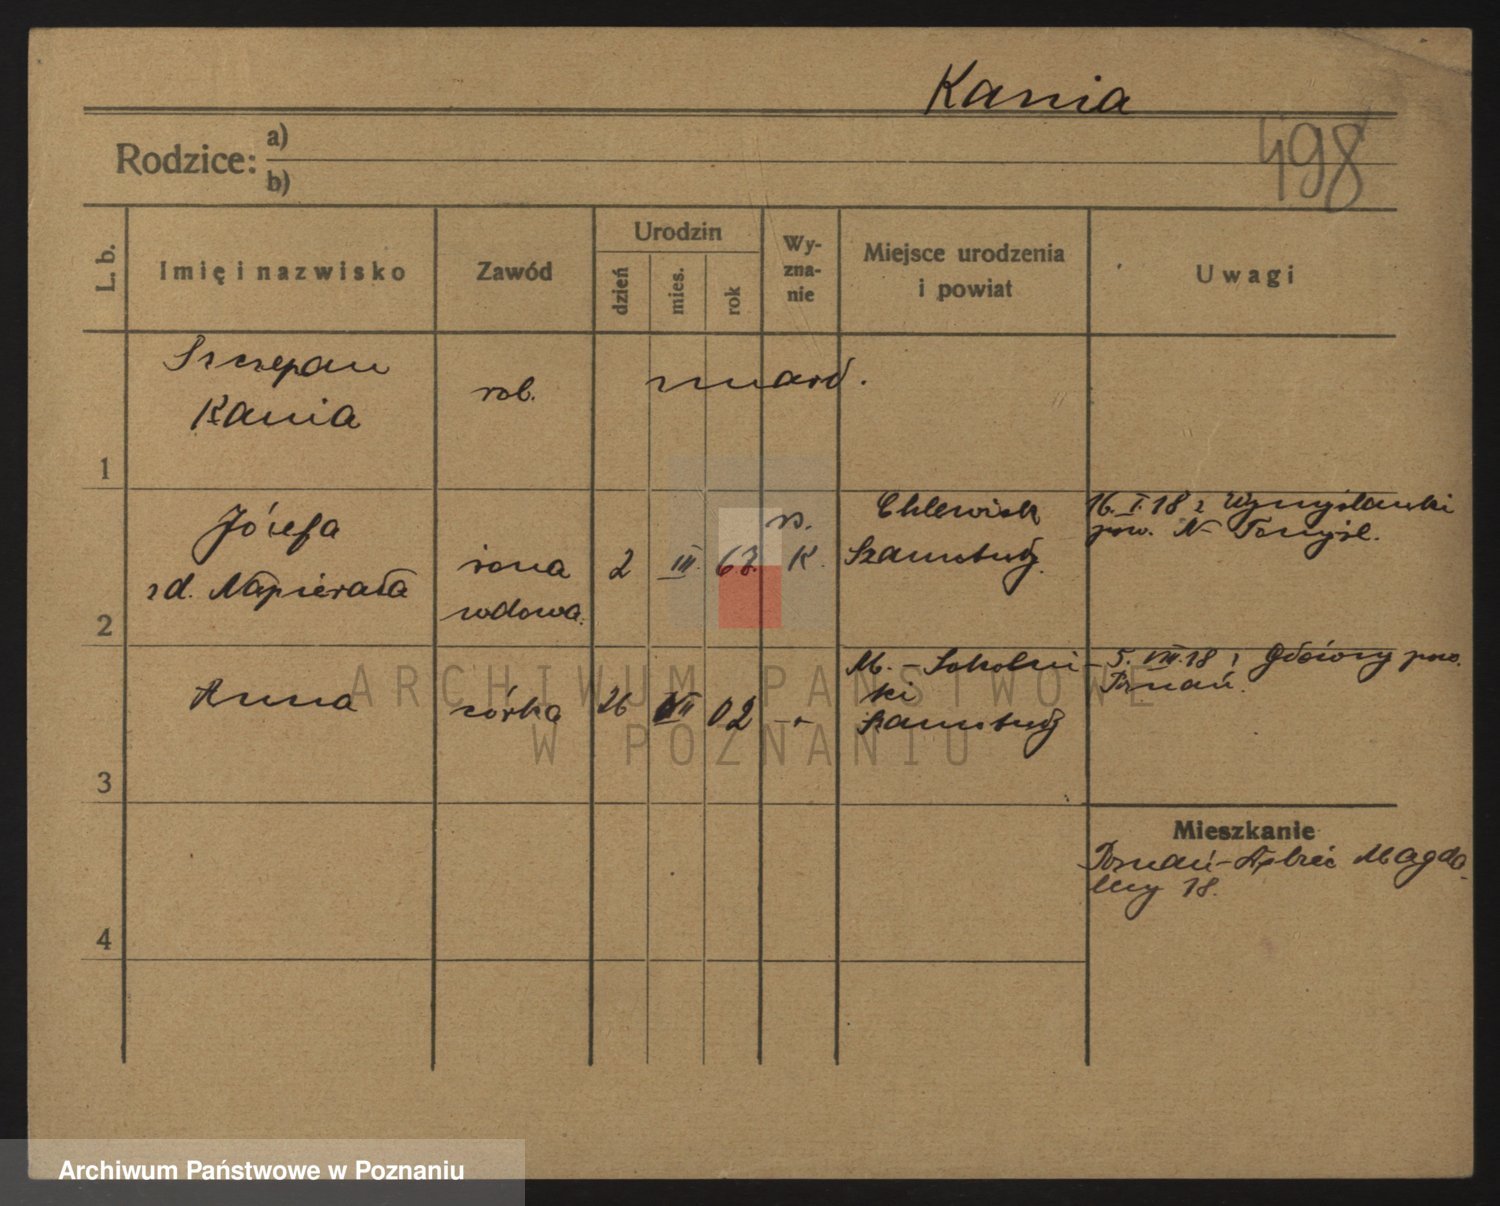 Kania
498
Rodzice: a)
b)
L. b.
Imię i nazwisko
Zawód
Urodzin
dzień
mies.
rok
Wy-
zna-
nie
Miejsce urodzenia
i powiat
Uwagi
1
Szczepan
Kania
rob.
zmarł.
2
Józefa
zd. Napierała
żona
wdowa.
2
III.
63.
rz.
K.
Chlewisk
Szamotuły.
16.I.18 z Wymysłanki
pow. N- Tomyśl.
3
Anna
córka
26
VII
02
-„-
M. - Sokolni-
ki
Szamotuły
5. VIII.18 z pow.
Poznań.
4
Mieszkanie
Poznań- Magda-
leny 18.
ARCHIWUM PAŃSTWOWE
W POZNANIU
Archiwum Państwowe w Poznaniu